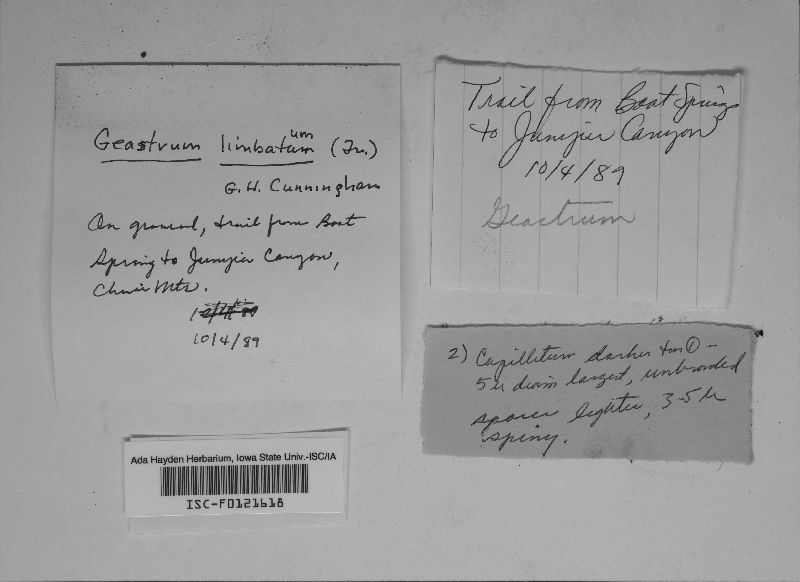 Geastrum limbatum um (Fr.)
G. H. Cunningham
On ground, trail from Boot
Spring to Juniper Canyon,
Chisos Mts.
10/4/89
Trail from Boot Springs
to Juniper Canyon
10/4/89
Geastrum
2) Capillitium darker than ① -
5 µ diam largest, unbranched
spores lighter, 3-5 µ
spiny.
Ada Hayden Herbarium, Iowa State Univ.-ISC/IA
ISC-F0121618